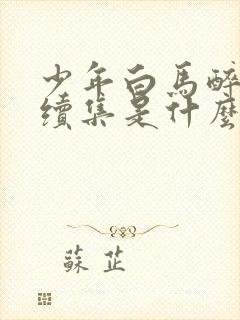 少年白馬醉
續集是什麼
蘇芷